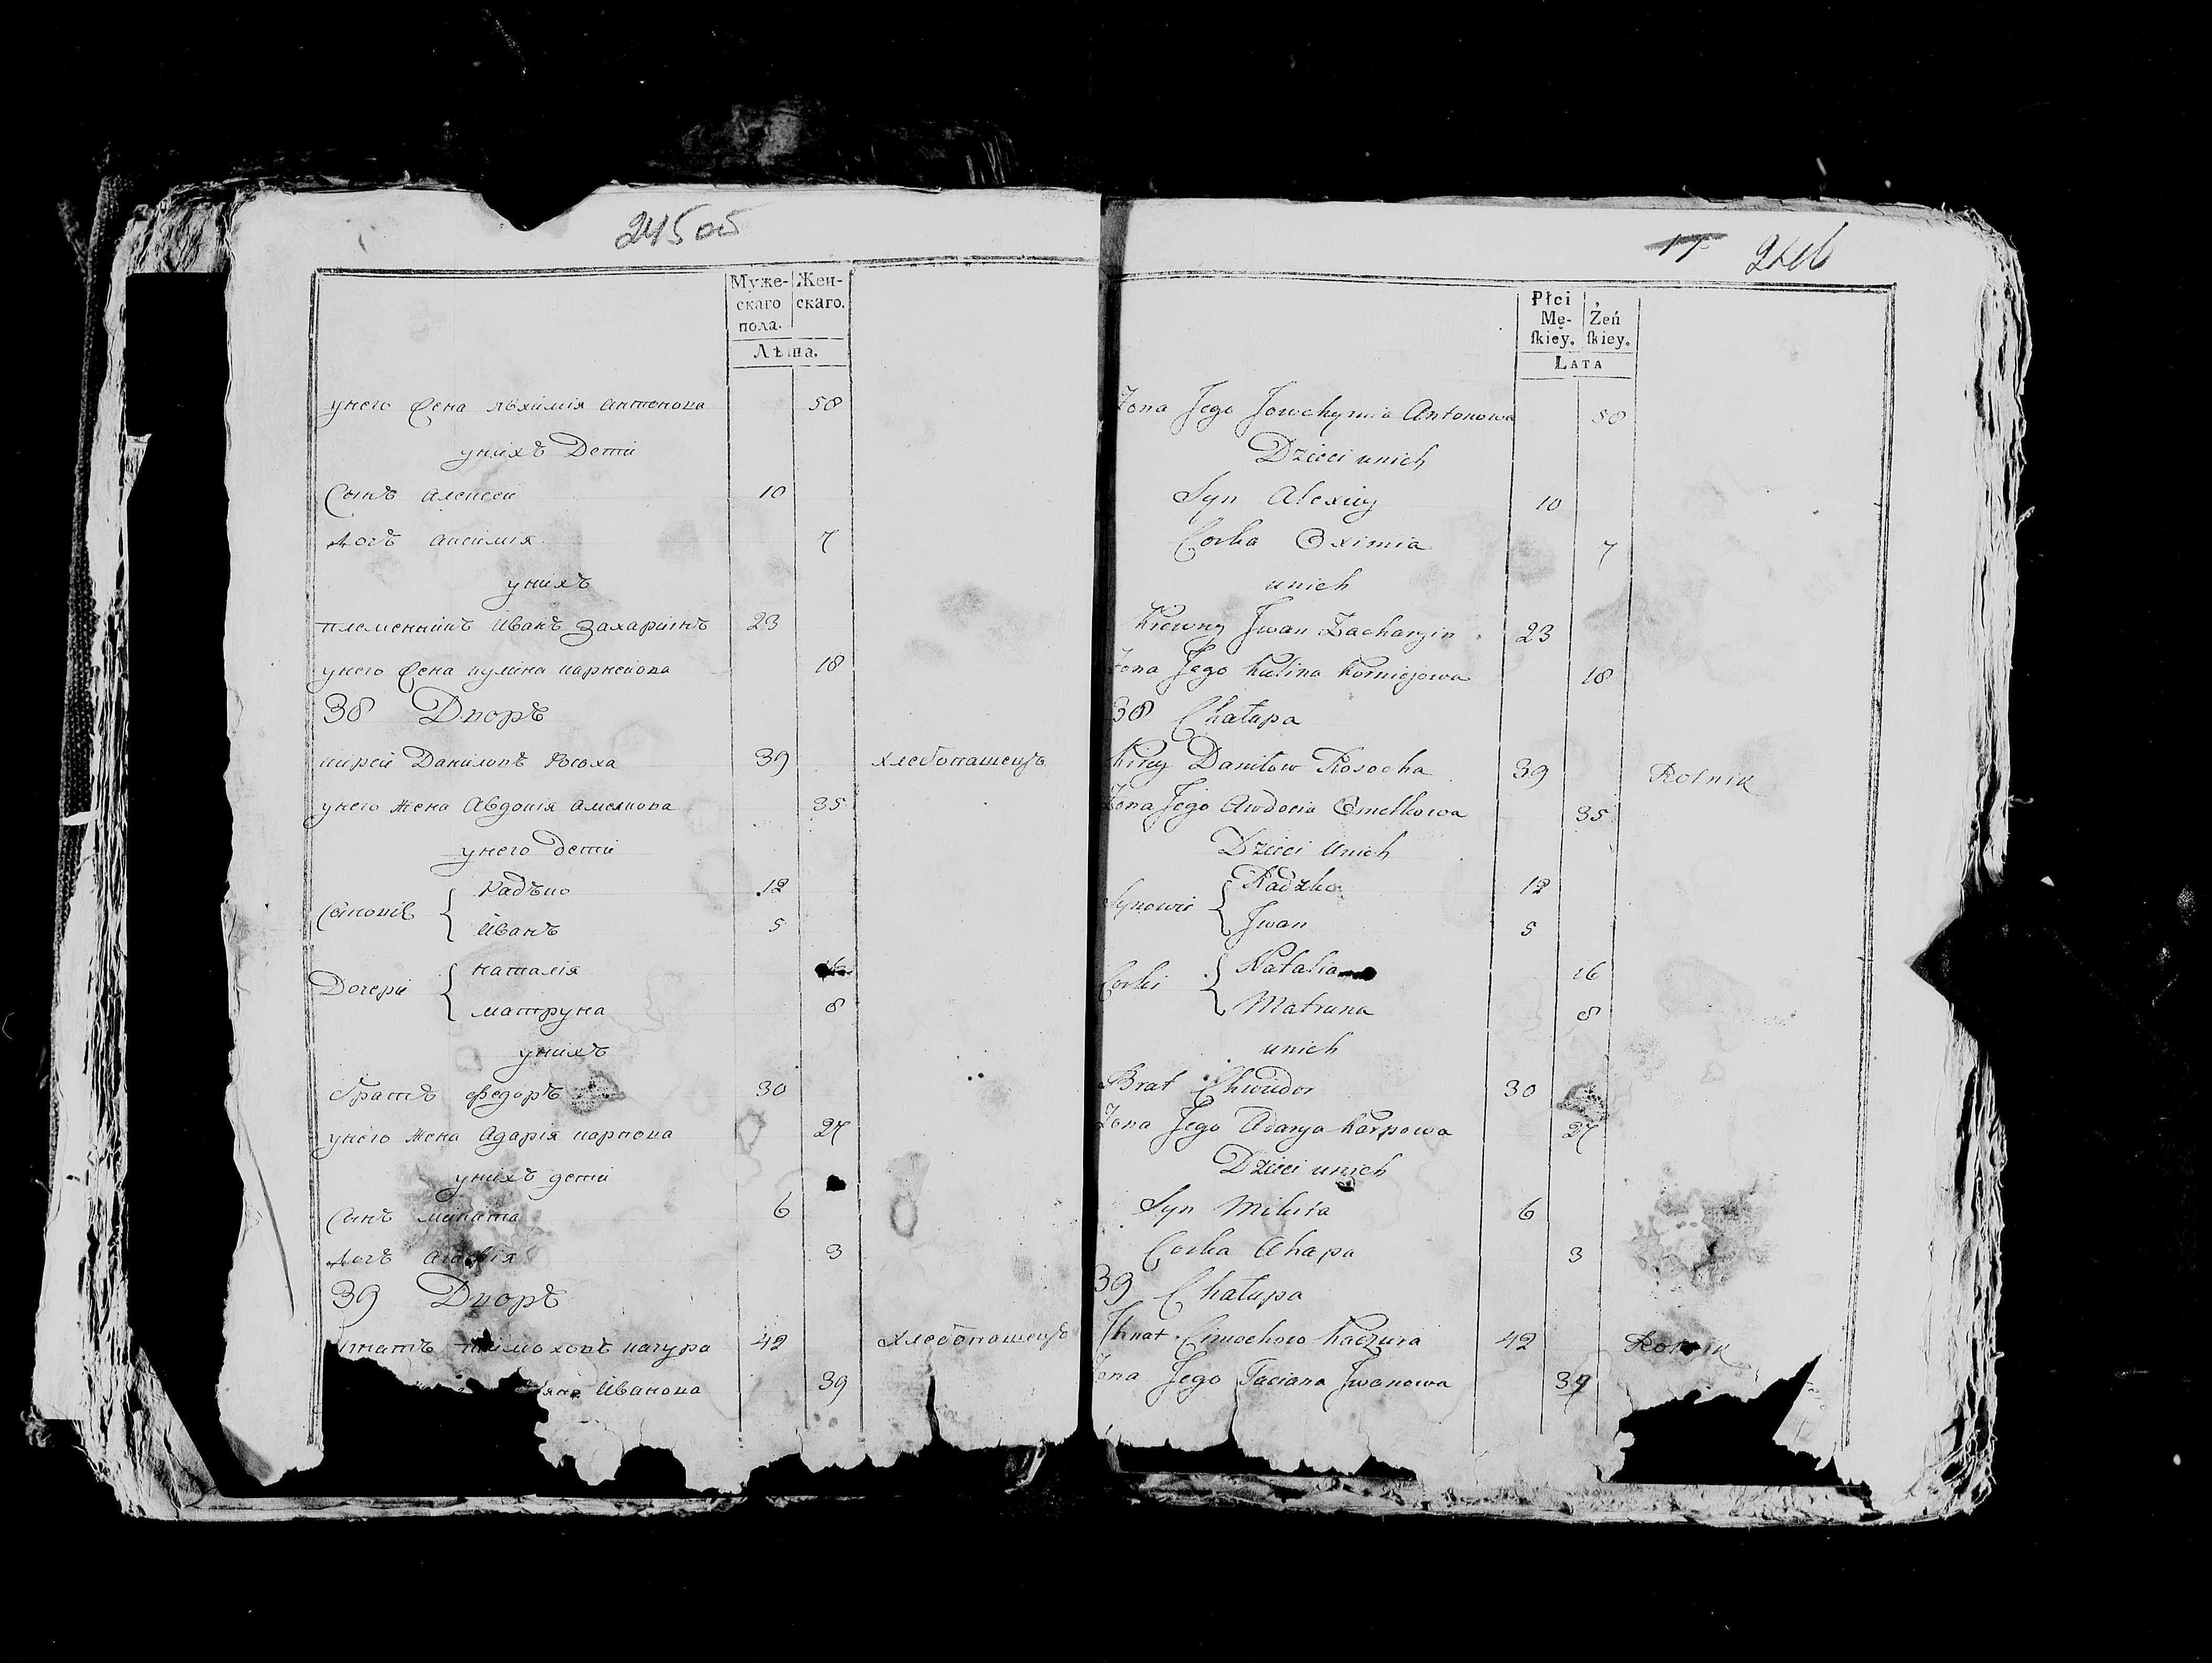 245 об
Муже-
скаго
пола.
Жен-
скаго.
Лѣта.
унего Жена Явхимія Антонова 50
унихъ Дети
Сынъ Алексеи 10
дочъ Аксимія 7
унихъ
племенникъ Иванъ Захаринъ 23
унего Жена кулина карнеиова 18
38 Дворъ
кирей Даниловъ Росоха 39 хлебопашецъ
унего жена Авдокія Амелкова 35
унего дети
Сыновіѣ { Радъко 12
Иванъ 5
Дочери { наталія
матруна 8
унихъ
братъ федоръ 30
унего жена Адарія карпова 27
унихъ дети
Сынъ микита 6
дочъ Агафія 3
39 Дворъ
Игнатъ тимоховъ качура 42 хлебопашецъ
Иванова 39
17 246
Płci
Mę-
skiey.
Żeń
skiey.
LATA
Żona Jego Jowchymia Antonowa 50
Dzieci unich
Syn Alexiey 10
Corka Oximia 7
unich
Krewny Jwan Zacharyin 23
Żona Jego Kulina Korniejowa 18
38 Chałupa
Kirey Daniłow Rosocha 39 Rolnik
Żona Jego Awdocia Omelkowa 35
Dzieci Unich
Synowie { Radzko 12
Jwan 5
Corki { Natalia 16
Matruna 8
unich
Brat Chwiedor 30
Żona Jego Adarya Karpowa 27
Dzieci unich
Syn Mikita 6
Corka Ahapa 3
39 Chałupa
Jhnat Cimochow Kaczura 42 Rolnik
Żona Jego Taciana Jwanowa 39